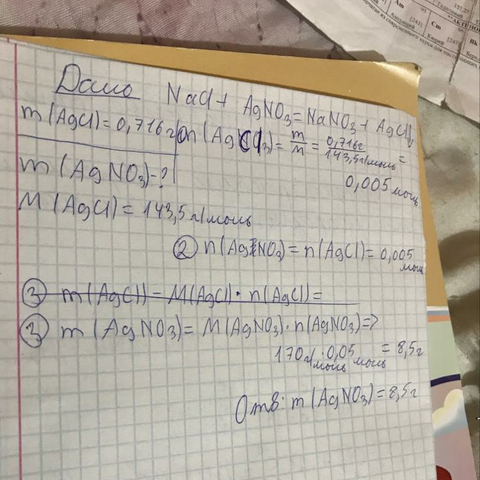 Дано NaCl + AgNO3 = NaNO3 + AgCl↓
m(AgCl) = 0,716г ① n(AgCl) = m/M = 0,716г/143,5г/моль =
0,005 моль
m(AgNO3) - ?
M(AgCl) = 143,5 г/моль
② n(AgNO3) = n(AgCl) = 0,005 моль
③ m(AgCl) = M(AgCl) · n(AgCl) =
③ m(AgNO3) = M(AgNO3) · n(AgNO3) =>
170г/моль · 0,05 моль = 8,5г
Отв: m(AgNO3) = 8,5г
Am
Cm
Bk